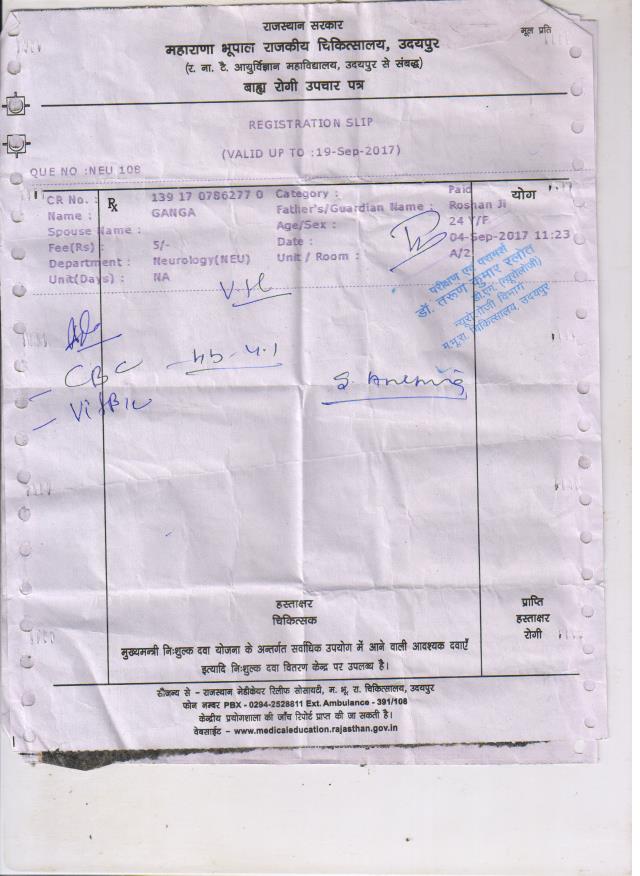 राजस्थान सरकार
मूल प्रति
महाराणा भूपाल राजकीय चिकित्सालय, उदयपुर
(र. ना. टै. आयुर्विज्ञान महाविद्यालय, उदयपुर से संबद्ध)
बाह्य रोगी उपचार पत्र
REGISTRATION SLIP
(VALID UP TO :19-Sep-2017)
QUE NO :NEU 108
CR No. : 139 17 0786277 0 Category : Paid
Rx
योग
Name : GANGA Father's/Guardian Name : Roshan Ji
Spouse Name : Age/Sex : 24 Y/F
Fee(Rs) : 5/- Date : 04-Sep-2017 11:23
Department : Neurology(NEU) Unit / Room : A/2
Unit(Days) : NA
परीक्षण एवं परामर्श
डॉ. तरुण कुमार रलोत
डी.एम. (न्यूरोलॉजी)
न्यूरोलोजी विभाग
म.भू.रा. चिकित्सालय, उदयपुर
CBC Hb-4.1
Vit B12
S. Anemia
हस्ताक्षर
चिकित्सक
प्राप्ति
हस्ताक्षर
रोगी
मुख्यमन्त्री निःशुल्क दवा योजना के अन्तर्गत सर्वाधिक उपयोग में आने वाली आवश्यक दवाएँ
इत्यादि निःशुल्क दवा वितरण केन्द्र पर उपलब्ध है।
सौजन्य से - राजस्थान मेडीकेयर रिलीफ सोसायटी, म. भू. रा. चिकित्सालय, उदयपुर
फोन नम्बर PBX - 0294-2528811 Ext. Ambulance - 391/108
केन्द्रीय प्रयोगशाला की जाँच रिपोर्ट प्राप्त की जा सकती है।
वेबसाईट - www.medicaleducation.rajasthan.gov.in